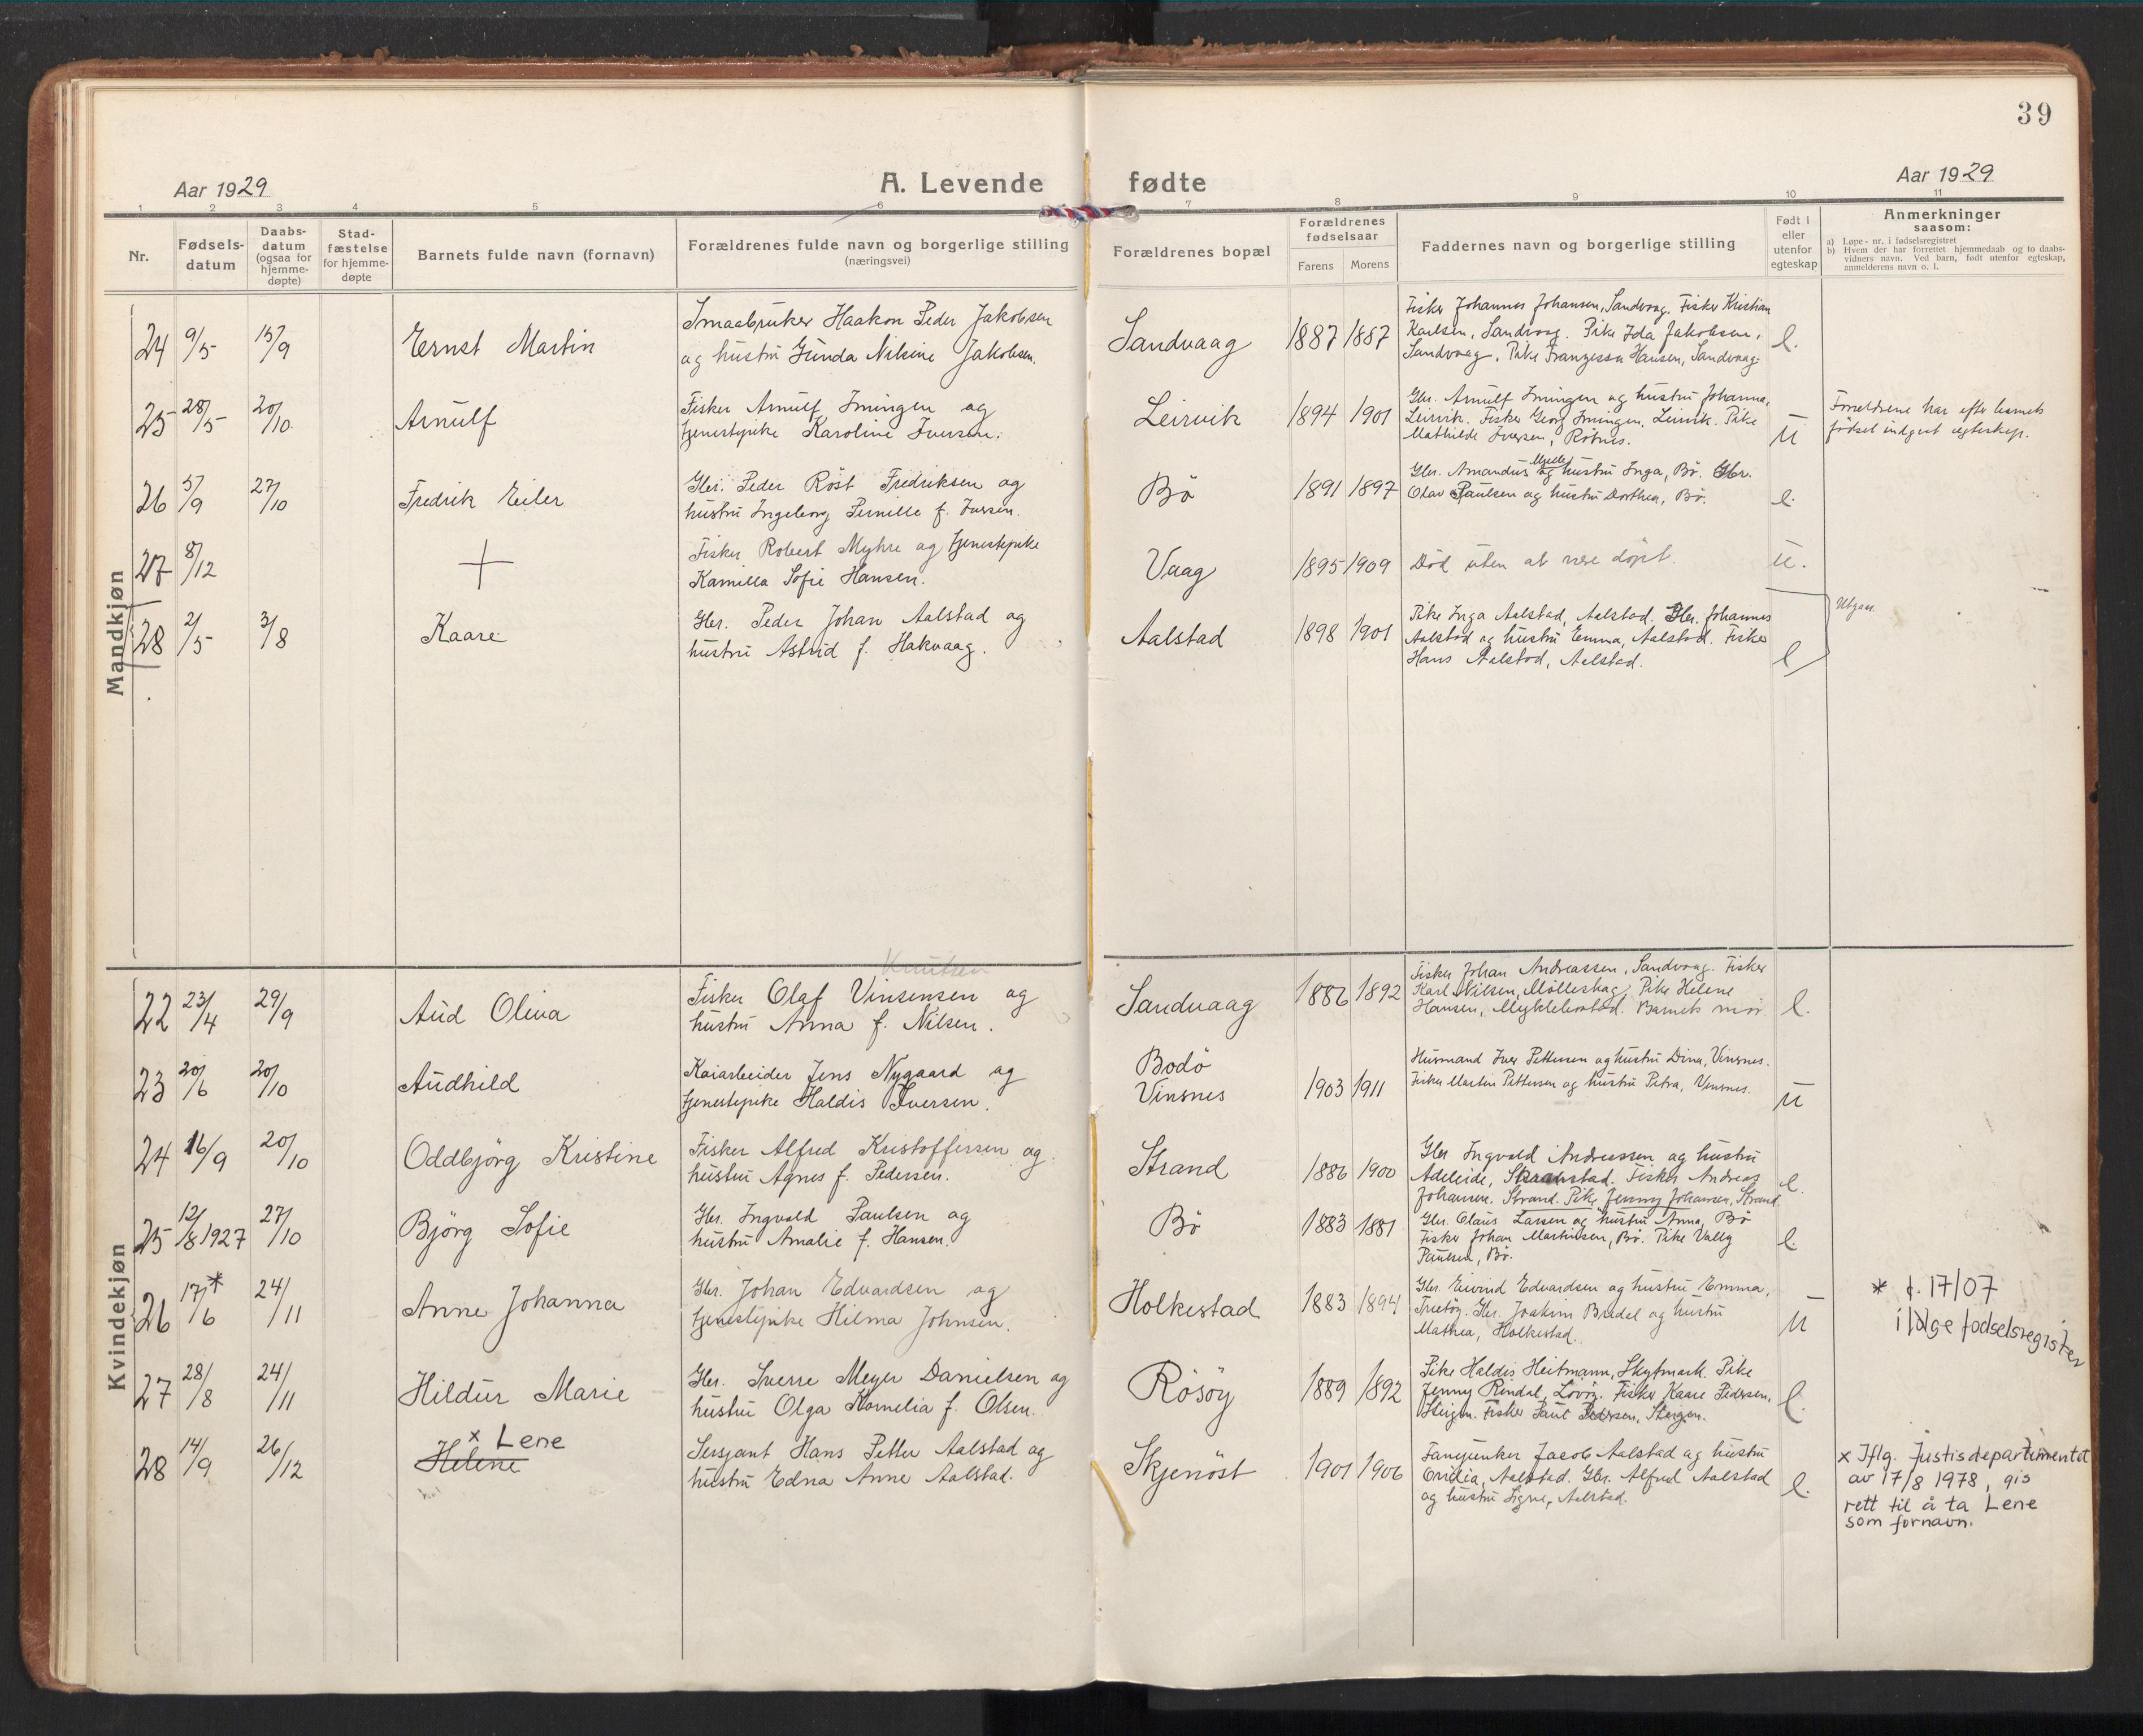 39
Aar 1929
A. Levende fødte
Aar 1929
1 2 3 4 5 6 7 8 9 10 11
Nr.
Fødsels-
datum
Daabs-
datum
(ogsaa for
hjemme-
døpte)
Stad-
fæstelse
for hjemme-
døpte
Barnets fulde navn (fornavn)
Forældrenes fulde navn og borgerlige stilling
(næringsvei)
Forældrenes bopæl
Forældrenes
fødselsaar
Farens Morens
Faddernes navn og borgerlige stilling
Født i
eller
utenfor
egteskap
Anmerkninger
saasom:
a) Løpe-nr. i fødselsregistret
b) Hvem der har forrettet hjemmedaab og to daabs-
vidners navn. Ved barn, født utenfor egteskap,
anmelderens navn o. l.
Mandkjøn
24 9/5 15/9 Ernst Martin
Smaabruker Haakon Peder Jakobsen
og hustru Gunda Nilsine Jakobsen.
Sandvaag 1887 1887
Fisker Johannes Johansen, Sandvaag. Fisker Kristian
Karlsen, Sandvaag. Pike Ida Jakobsen,
Sandvaag. Pike Franzessa Hansen, Sandvaag.
l.
25 28/5 20/10 Arnulf
Fisker Arnulf Imingen og
tjenestepike Karoline Iversen.
Leirvik 1894 1901
Gbr. Arnulf Imingen og hustru Johanna,
Leirvik. Fisker Georg Imingen, Leirvik. Pike
Mathilde Iversen, Rotnes.
u
Foreldrene har efter barnets
födsel indgaat egteskap.
26 5/9 27/10 Fredrik Eiler
Gbr. Peder Röst Fredriksen og
hustru Ingeborg Pernille f. Iversen.
Bö 1891 1897
Gbr. Amandus og hustru Inga, Bö. Gbr.
Olav Paulsen og hustru Dorthea, Bö.
l.
27 8/12 +
Fisker Robert Myhre og tjenestepike
Kamilla Sofie Hansen.
Vaag 1895 1909
Död uten at være döpt.
u.
28 2/5 3/8 Kaare
Gbr. Peder Johan Aalstad og
hustru Astrid f. Hakvaag.
Aalstad 1898 1901
Pike Inga Aalstad, Aalstad. Gbr. Johannes
Aalstad og hustru Emma, Aalstad. Fisker
Hans Aalstad, Aalstad.
l
Utgaar
Kvindekjøn
Knutsen
22 23/4 29/9 Aud Oliva
Fisker Olaf Vinsensen og
hustru Anna f. Nilsen.
Sandvaag 1886 1892
Fisker Johan Andreassen, Sandvaag. Fisker
Karl Nilsen, Mölleskag. Pike Helene
Hansen, Myklebostad. Barnets mor.
l.
23 20/6 20/10 Audhild
Kaiarbeider Jens Nygaard og
tjenestepike Haldis Iversen.
Bodö
Vinsnes 1903 1911
Husmand Iver Pettersen og hustru Dina, Vinsnes.
Fisker Martin Pettersen og hustru Petra, Vinsnes.
u
24 16/9 20/10 Oddbjörg Kristine
Fisker Alfred Kristoffersen og
hustru Agnes f. Pedersen.
Strand 1886 1900
Gbr Ingvald Andreassen og hustru
Adeleide, Fisker Andreas
Johansen, Strand. Pike Jenny Johansen, Strand.
l.
25 12/8 1927 27/10 Björg Sofie
Gbr. Ingvald Paulsen og
hustru Amalie f. Hansen.
Bö 1883 1881
Gbr. Claus Larsen og hustru Anna, Bö
Fisker Johan Martinsen, Bö. Pike Vally
Paulsen, Bö.
l.
26 17/6 * 24/11 Anne Johanna
Gbr. Johan Edvardsen og
tjenestepike Hilma Johnsen.
Holkestad 1883 1894
Gbr. Eivind Edvardsen og hustru Emma,
Gbr. Joakim Bredal og hustru
Mathea, Holkestad.
u
* f. 17/07
ifölge fodselsregister
27 28/8 24/11 Hildur Marie
Gbr. Sverre Meyer Danielsen og
hustru Olga Kornelia f. Olsen.
Rösöy 1889 1892
Pike Haldis Heitmann, Skytmark. Pike
Jenny Rindal, Lövöy. Fisker Kaare Pedersen,
Steigen. Fisker Paul Pedersen, Steigen.
l.
28 14/9 26/12 x Lene
Helene
Sersjant Hans Petter Aalstad og
hustru Edna Anne Aalstad.
Skjenöst 1901 1906
Fanejunker Jacob Aalstad og hustru
Ovidia, Aalstad. Gbr. Alfred Aalstad
og hustru Signe, Aalstad.
l.
x Iflg. Justisdepartementet
av 17/8 1978, gis
rett til å ta Lene
som fornavn.